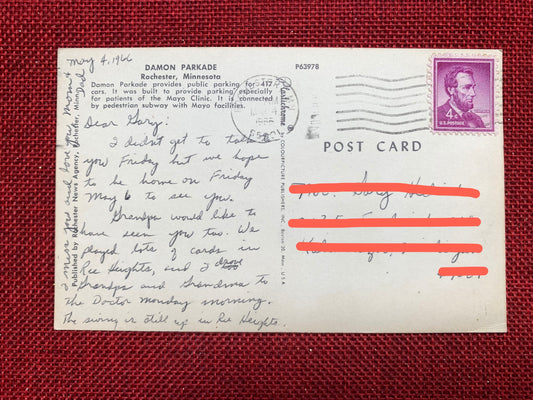 May 4, 1966
DAMON PARKADE
Rochester, Minnesota
Damon Parkade provides public parking for 417
cars. It was built to provide parking especially
for patients of the Mayo Clinic. It is connected
by pedestrian subway with Mayo facilities.
P63978
Plastichrome ®
BY COLOURPICTURE PUBLISHERS, INC. Boston 30, Mass., U.S.A.
Published by Rochester News Agency, Rochester, Minn.
4¢
U.S. POSTAGE
POST CARD
Dear Gary:
I didn't get to
you Friday but we hope
to be home on Friday
May 6 to see you.
Grandpa would like to
have seen you too. We
played lots of cards in
Ree Heights, and I drove
Grandpa and Grandma to
the Doctor Monday morning.
The swing is still up in Ree Heights.
I miss you and love you, Mom &
Dad